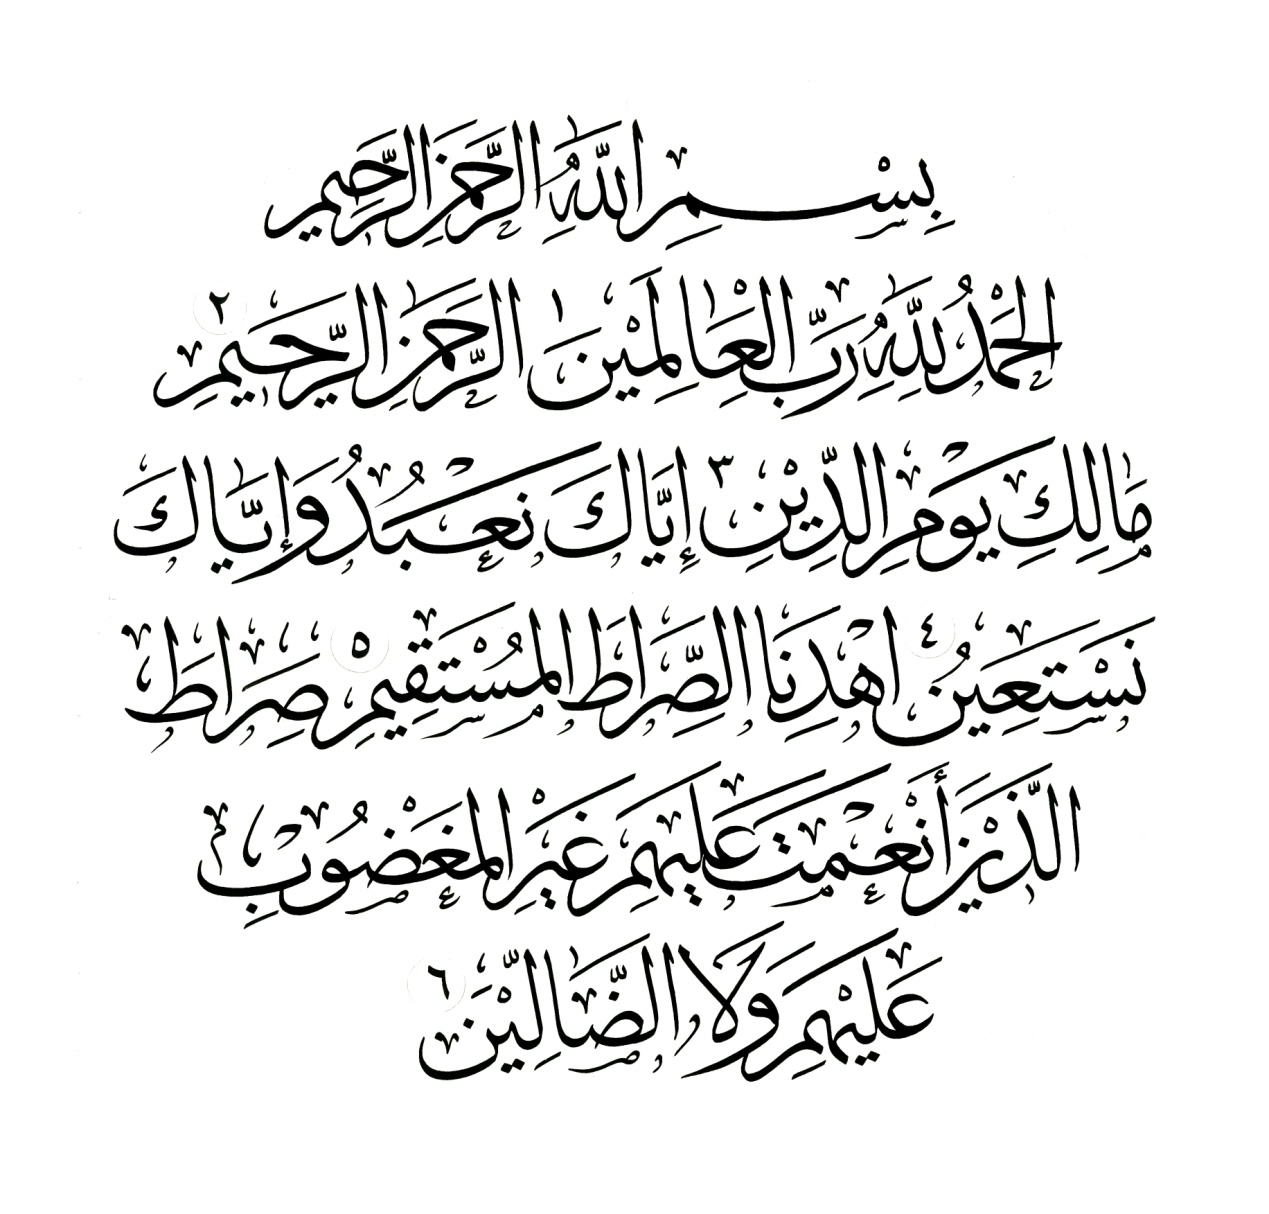 بِسْمِ اللَّهِ الرَّحْمٰنِ الرَّحِيمِ
الْحَمْدُ لِلَّهِ رَبِّ الْعَالَمِيْنَ ١ الرَّحْمٰنِ الرَّحِيمِ ٢
مَالِكِ يَوْمِ الدِّيْنِ ٣ إِيَّاكَ نَعْبُدُ وَإِيَّاكَ
نَسْتَعِيْنُ ٤ اهْدِنَا الصِّرَاطَ الْمُسْتَقِيْمَ ٥ صِرَاطَ
الَّذِيْنَ أَنْعَمْتَ عَلَيْهِمْ غَيْرِ الْمَغْضُوْبِ
عَلَيْهِمْ وَلَا الضَّالِّيْنَ ٦